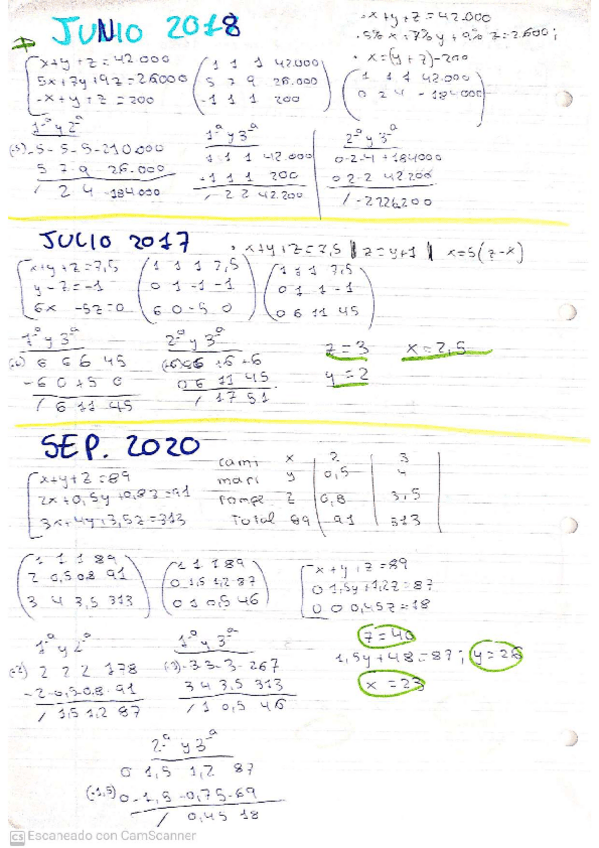 → JUNIO 2018
· x+y+z=42.000
· 5% x + 7% y + 9% z = 2.600;
· x=(y+z)-200
x+y+z=42.000
5x+7y+9z=26000
-x+y+z=200
1 1 1 42.000
5 7 9 26.000
-1 1 1 200
1 1 1 42.000
0 2 4 -184.000
1ª y 2ª
(-5) -5 -5 -5 -210.000
5 7 9 26.000
/ 2 4 -184.000
1ª y 3ª
1 1 1 42.000
-1 1 1 200
/ 2 2 42.200
2ª y 3ª
0 -2 -4 +184000
0 2 2 42200
/ -2 226,200
JULIO 2017
· x+y+z=7,5 | z=y+1 | x=5(z-x)
x+y+z=7,5
y-z=-1
6x -5z=0
1 1 1 7,5
0 1 -1 -1
6 0 -5 0
1 1 1 7,5
0 1 1 -1
0 6 11 45
1ª y 3ª
(6) 6 6 6 45
-6 0 +5 0
/ 6 11 45
2ª y 3ª
+6 +6
0 6 11 45
/ 17 51
z=3
x=2,5
y=2
SEP. 2020
x+y+z=89
2x+0,5y+0,8z=91
3x+4y+3,5z=313
cami x 2 3
mari y 0,5 4
rompe z 0,8 3,5
Total 89 91 313
1 1 1 89
2 0,5 0,8 91
3 4 3,5 313
1 1 1 89
0 1,5 1,2 87
0 1 0,5 46
x+y+z=89
0 1,5y+1,2z=87
0 0 0,45z=18
1ª y 2ª
2 2 2 178
-2 -0,5 -0,8 -91
/ 1,5 1,2 87
1ª y 3ª
(3) -3 -3 -3 -267
3 4 3,5 313
/ 1 0,5 46
z=40
1,5y+48=87; y=26
x=23
2ª y 3ª
0 1,5 1,2 87
(-1,5) 0 -1,5 -0,75 -69
/ 0,45 18
CS Escaneado con CamScanner